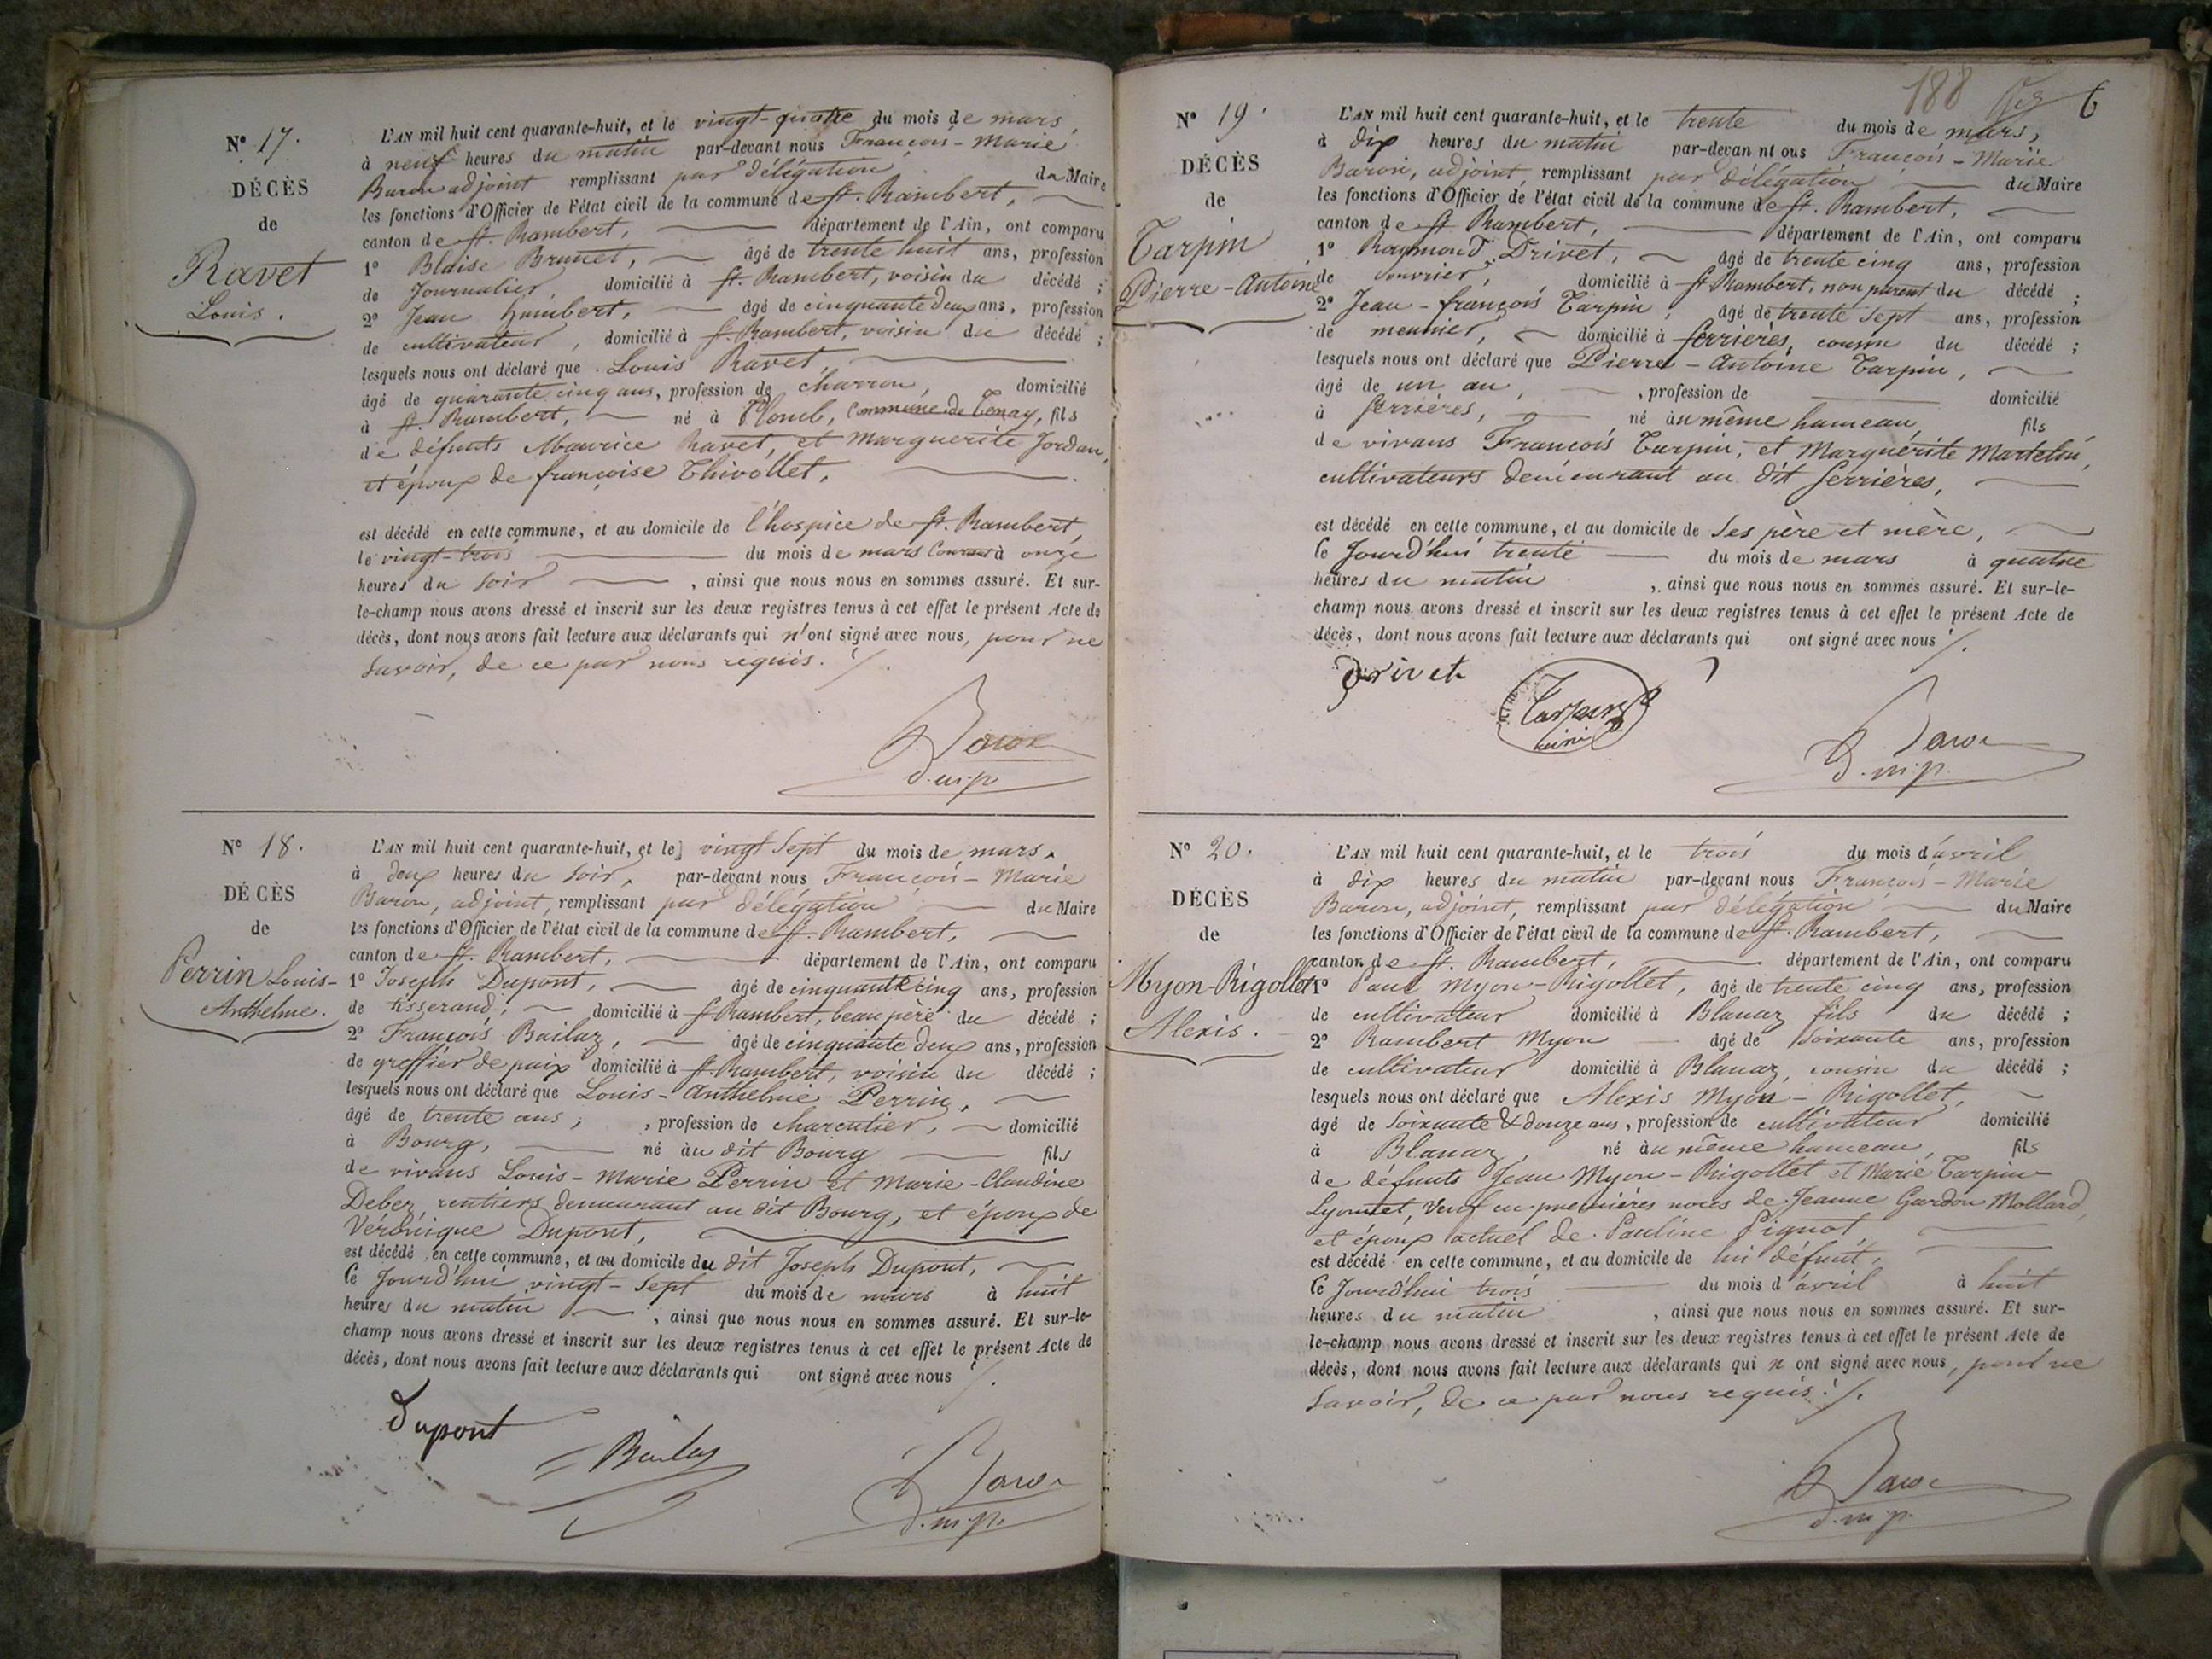 N° 17.
DÉCÈS
de
Ravet
Louis.
L'AN mil huit cent quarante-huit, et le vingt-quatre du mois de mars,
à neuf heures du matin par-devant nous François-Marie
Baron adjoint remplissant par délégation du Maire
les fonctions d'Officier de l'état civil de la commune de St. Rambert,
canton de St. Rambert, département de l'Ain, ont comparu
1° Blaise Brunet, âgé de trente huit ans, profession
de Journalier, domicilié à St. Rambert, voisin du décédé ;
2° Jean Humbert, âgé de cinquante deux ans, profession
de cultivateur, domicilié à St. Rambert, voisin du décédé ;
lesquels nous ont déclaré que Louis Ravet,
âgé de quarante cinq ans, profession de charron, domicilié
à St. Rambert, né à Plomb, commune de Tenay, fils
de défunts Maurice Ravet, et Marguerite Jordan,
et époux de françoise Thivollet,
est décédé en cette commune, et au domicile de l'hospice de St. Rambert,
le vingt-trois du mois de mars Courant à onze
heures du soir, ainsi que nous nous en sommes assuré. Et sur-
le-champ nous avons dressé et inscrit sur les deux registres tenus à cet effet le présent Acte de
décès, dont nous avons fait lecture aux déclarants qui n'ont signé avec nous, pour ne
savoir, de ce par nous requis. /.
Baron
d.m.p
N° 18.
DÉCÈS
de
Perrin Louis-
Anthelme.
L'AN mil huit cent quarante-huit, et le vingt sept du mois de mars,
à deux heures du soir, par-devant nous François-Marie
Baron, adjoint, remplissant par délégation du Maire
les fonctions d'Officier de l'état civil de la commune de St. Rambert,
canton de St. Rambert, département de l'Ain, ont comparu
1° Joseph Dupont, âgé de cinquante cinq ans, profession
de tisserand, domicilié à St Rambert, beau père du décédé ;
2° François Bailaz, âgé de cinquante deux ans, profession
de greffier de paix domicilié à St. Rambert, voisin du décédé ;
lesquels nous ont déclaré que Louis-Anthelme Perrin,
âgé de trente ans ; , profession de charcutier, domicilié
à Bourg, né au dit Bourg fils
de vivans Louis-Marie Perrin et Marie-Claudine
Deber, rentiers demeurant au dit Bourg, et époux de
Véronique Dupont,
est décédé en cette commune, et au domicile du dit Joseph Dupont,
Ce Jourd'hui vingt-sept du mois de mars à huit
heures du matin, ainsi que nous nous en sommes assuré. Et sur-le-
champ nous avons dressé et inscrit sur les deux registres tenus à cet effet le présent Acte de
décès, dont nous avons fait lecture aux déclarants qui ont signé avec nous /.
Dupont
Bailaz
Baron
d.m.p.
188 6
N° 19.
DÉCÈS
de
Tarpin
Pierre-Antoine
L'AN mil huit cent quarante-huit, et le trente du mois de mars,
à dix heures du matin par-devan nt ous François-Marie
Baron, adjoint remplissant par délégation du Maire
les fonctions d'Officier de l'état civil de la commune de St. Rambert,
canton de St Rambert, département de l'Ain, ont comparu
1° Raymond Drivet, âgé de trente cinq ans, profession
de ouvrier, domicilié à St Rambert, non parent du décédé ;
2° Jean-françois Tarpin, âgé de trente sept ans, profession
de meunier, domicilié à Serrières, cousin du décédé ;
lesquels nous ont déclaré que Pierre-Antoine Tarpin,
âgé de un an, , profession de domicilié
à Serrières, né au même hameau, fils
de vivans François Tarpin, et Marguerite Martelin,
cultivateurs demeurant au dit Serrières,
est décédé en cette commune, et au domicile de ses père et mère,
Ce Jourd'hui trente du mois de mars à quatre
heures du matin, ainsi que nous nous en sommes assuré. Et sur-le-
champ nous avons dressé et inscrit sur les deux registres tenus à cet effet le présent Acte de
décès, dont nous avons fait lecture aux déclarants qui ont signé avec nous /.
Drivet
Tarpin
Baron
d.m.p.
N° 20.
DÉCÈS
de
Myon-Rigollet
Alexis.
L'AN mil huit cent quarante-huit, et le trois du mois d'avril
à dix heures du matin par-devant nous François-Marie
Baron, adjoint, remplissant par délégation du Maire
les fonctions d'Officier de l'état civil de la commune de St. Rambert,
canton de St. Rambert, département de l'Ain, ont comparu
1° Paul Myon-Rigollet, âgé de trente cinq ans, profession
de cultivateur domicilié à Blanaz fils du décédé ;
2° Rambert Myon âgé de soixante ans, profession
de cultivateur domicilié à Blanaz, cousin du décédé ;
lesquels nous ont déclaré que Alexis Myon-Rigollet,
âgé de soixante & douze ans, profession de cultivateur domicilié
à Blanaz, né au même hameau, fils
de défunts Jean Myon-Rigollet et Marie Tarpin
Lyonnet, veuf en premières noces de Jeanne Gardon Mollard,
et époux actuel de Pauline Pignot,
est décédé en cette commune, et au domicile de lui défunt,
Ce Jourd'hui trois du mois d'avril à huit
heures du matin, ainsi que nous nous en sommes assuré. Et sur-
le-champ nous avons dressé et inscrit sur les deux registres tenus à cet effet le présent Acte de
décès, dont nous avons fait lecture aux déclarants qui n ont signé avec nous, pour ne
savoir, de ce par nous requis. /.
Baron
d.m.p.